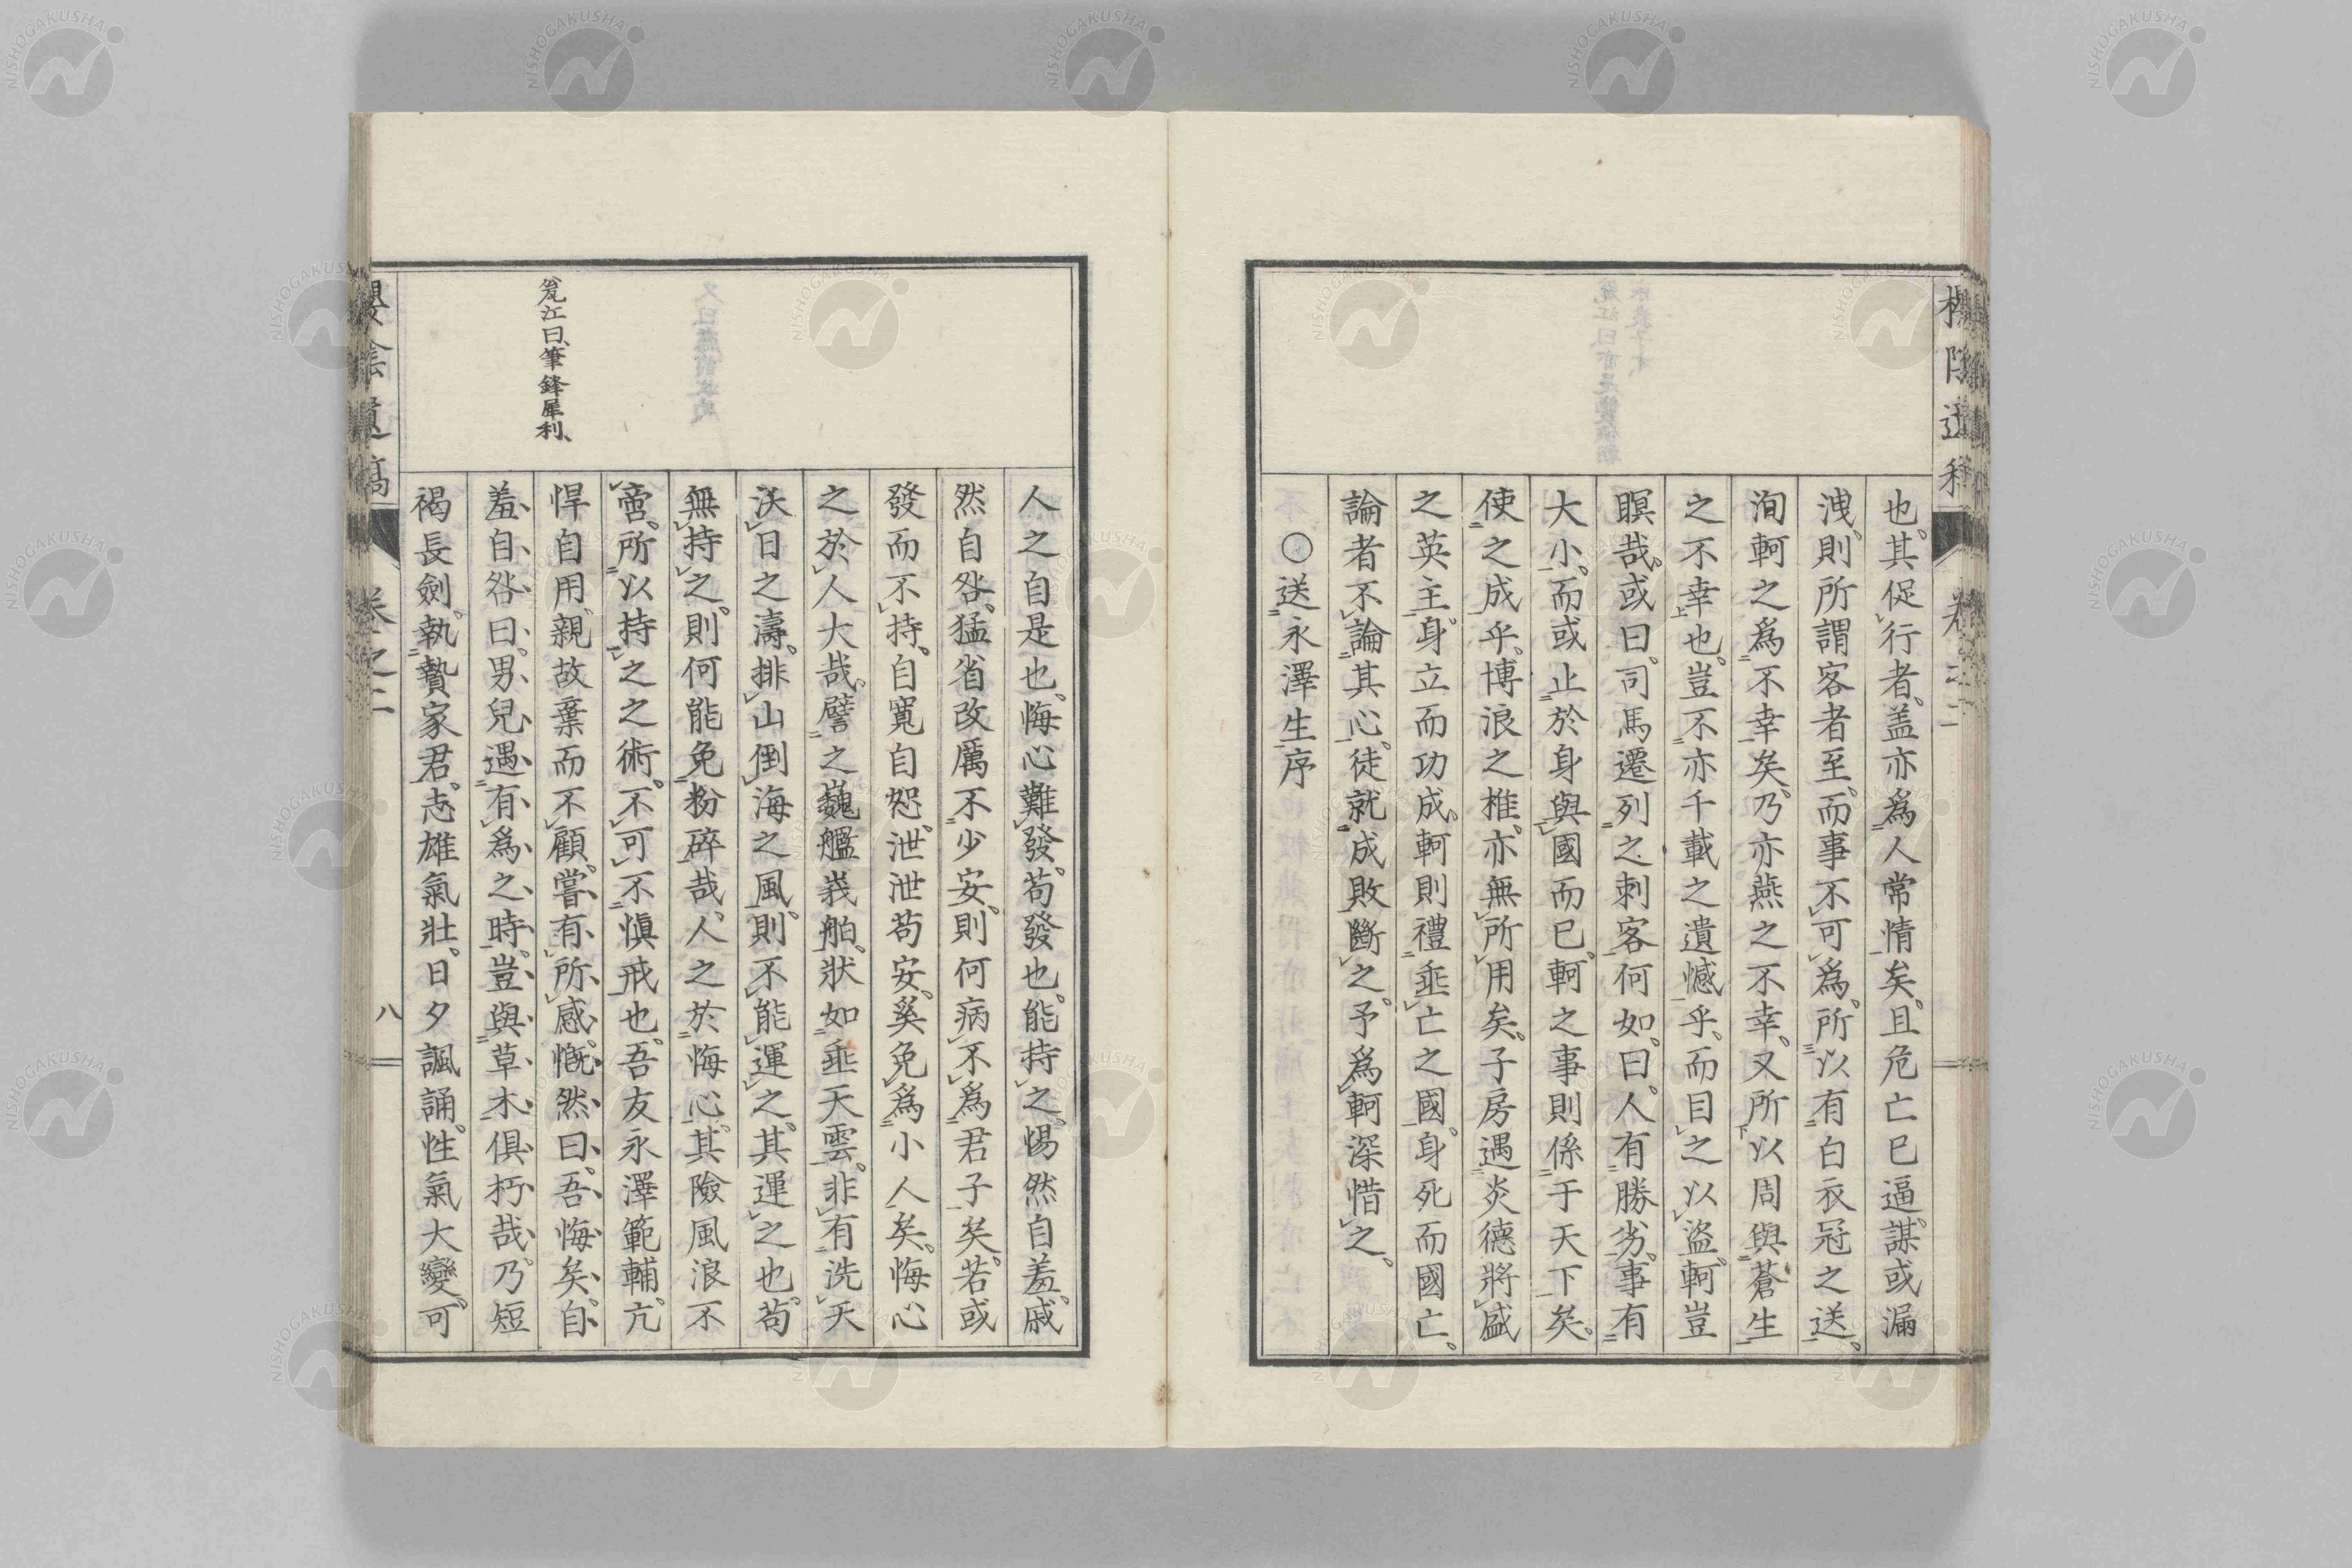 也、其促行者、蓋亦爲人常情矣、且危亡已逼、謀或漏
洩、則所謂客者至、而事不可爲、所以有白衣冠之送、
洵軻之爲不幸矣、乃亦燕之不幸、又所以周與蒼生
之不幸也、豈不亦千載之遺憾乎、而目之以盜、軻豈
瞑哉、或曰、司馬遷列之刺客何如、曰、人有勝劣、事有
大小、而或止於身與國而已、軻之事則係于天下矣、
使之成乎、博浪之椎、亦無所用矣、子房遇炎德將盛
之英主、身立而功成、軻則禮垂亡之國、身死而國亡、
論者不論其心、徒就成敗斷之、予爲軻深惜之、
○送永澤生序
人之自是也、悔心難發、苟發也、能持之、惕然自羞、戚
然自咎、猛省改厲、不少安、則何病不爲君子矣、若或
發而不持、自寬自恕、泄泄苟安、奚免爲小人矣、悔心
之於人大哉、譬之巍艦峩舶、狀如垂天雲、非有洗天
沃日之濤、排山倒海之風、則不能運之、其運之也、苟
無持之、則何能免粉碎哉、人之於悔心、其險風浪不
啻、所以持之之術、不可不愼戒也、吾友永澤範輔、亢
悍自用、親故棄而不顧、嘗有所感、慨然曰、吾悔矣、自
羞、自咎、曰、男兒遇有爲之時、豈與草木俱朽哉、乃短
褐長劍、執贄家君、志雄氣壯、日夕諷誦、性氣大變、可
瓮江曰、筆鋒犀利、
卷之二
八
NISHOGAKUSHA